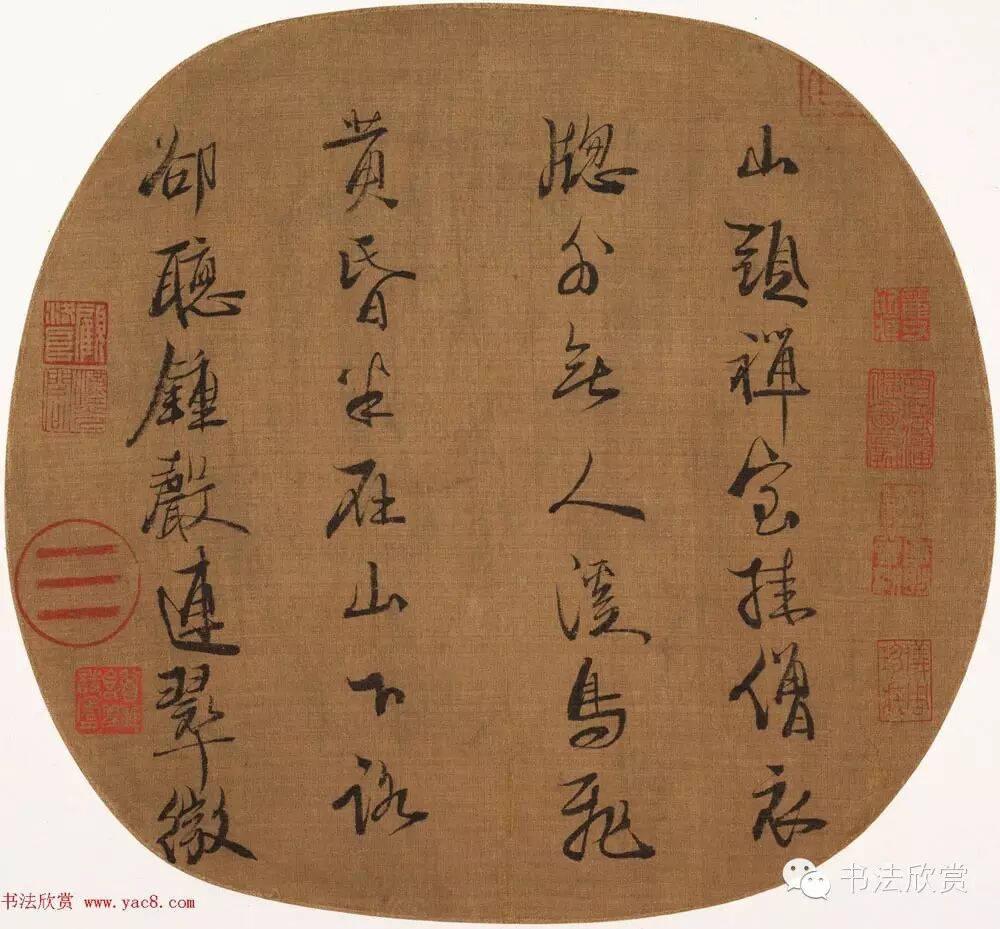 山頭禪室挂僧衣
牎外無人溪鳥飛
黄昏半在山下路
卻聽鍾聲連翠微
书法欣赏
书法欣赏 www.yac8.com